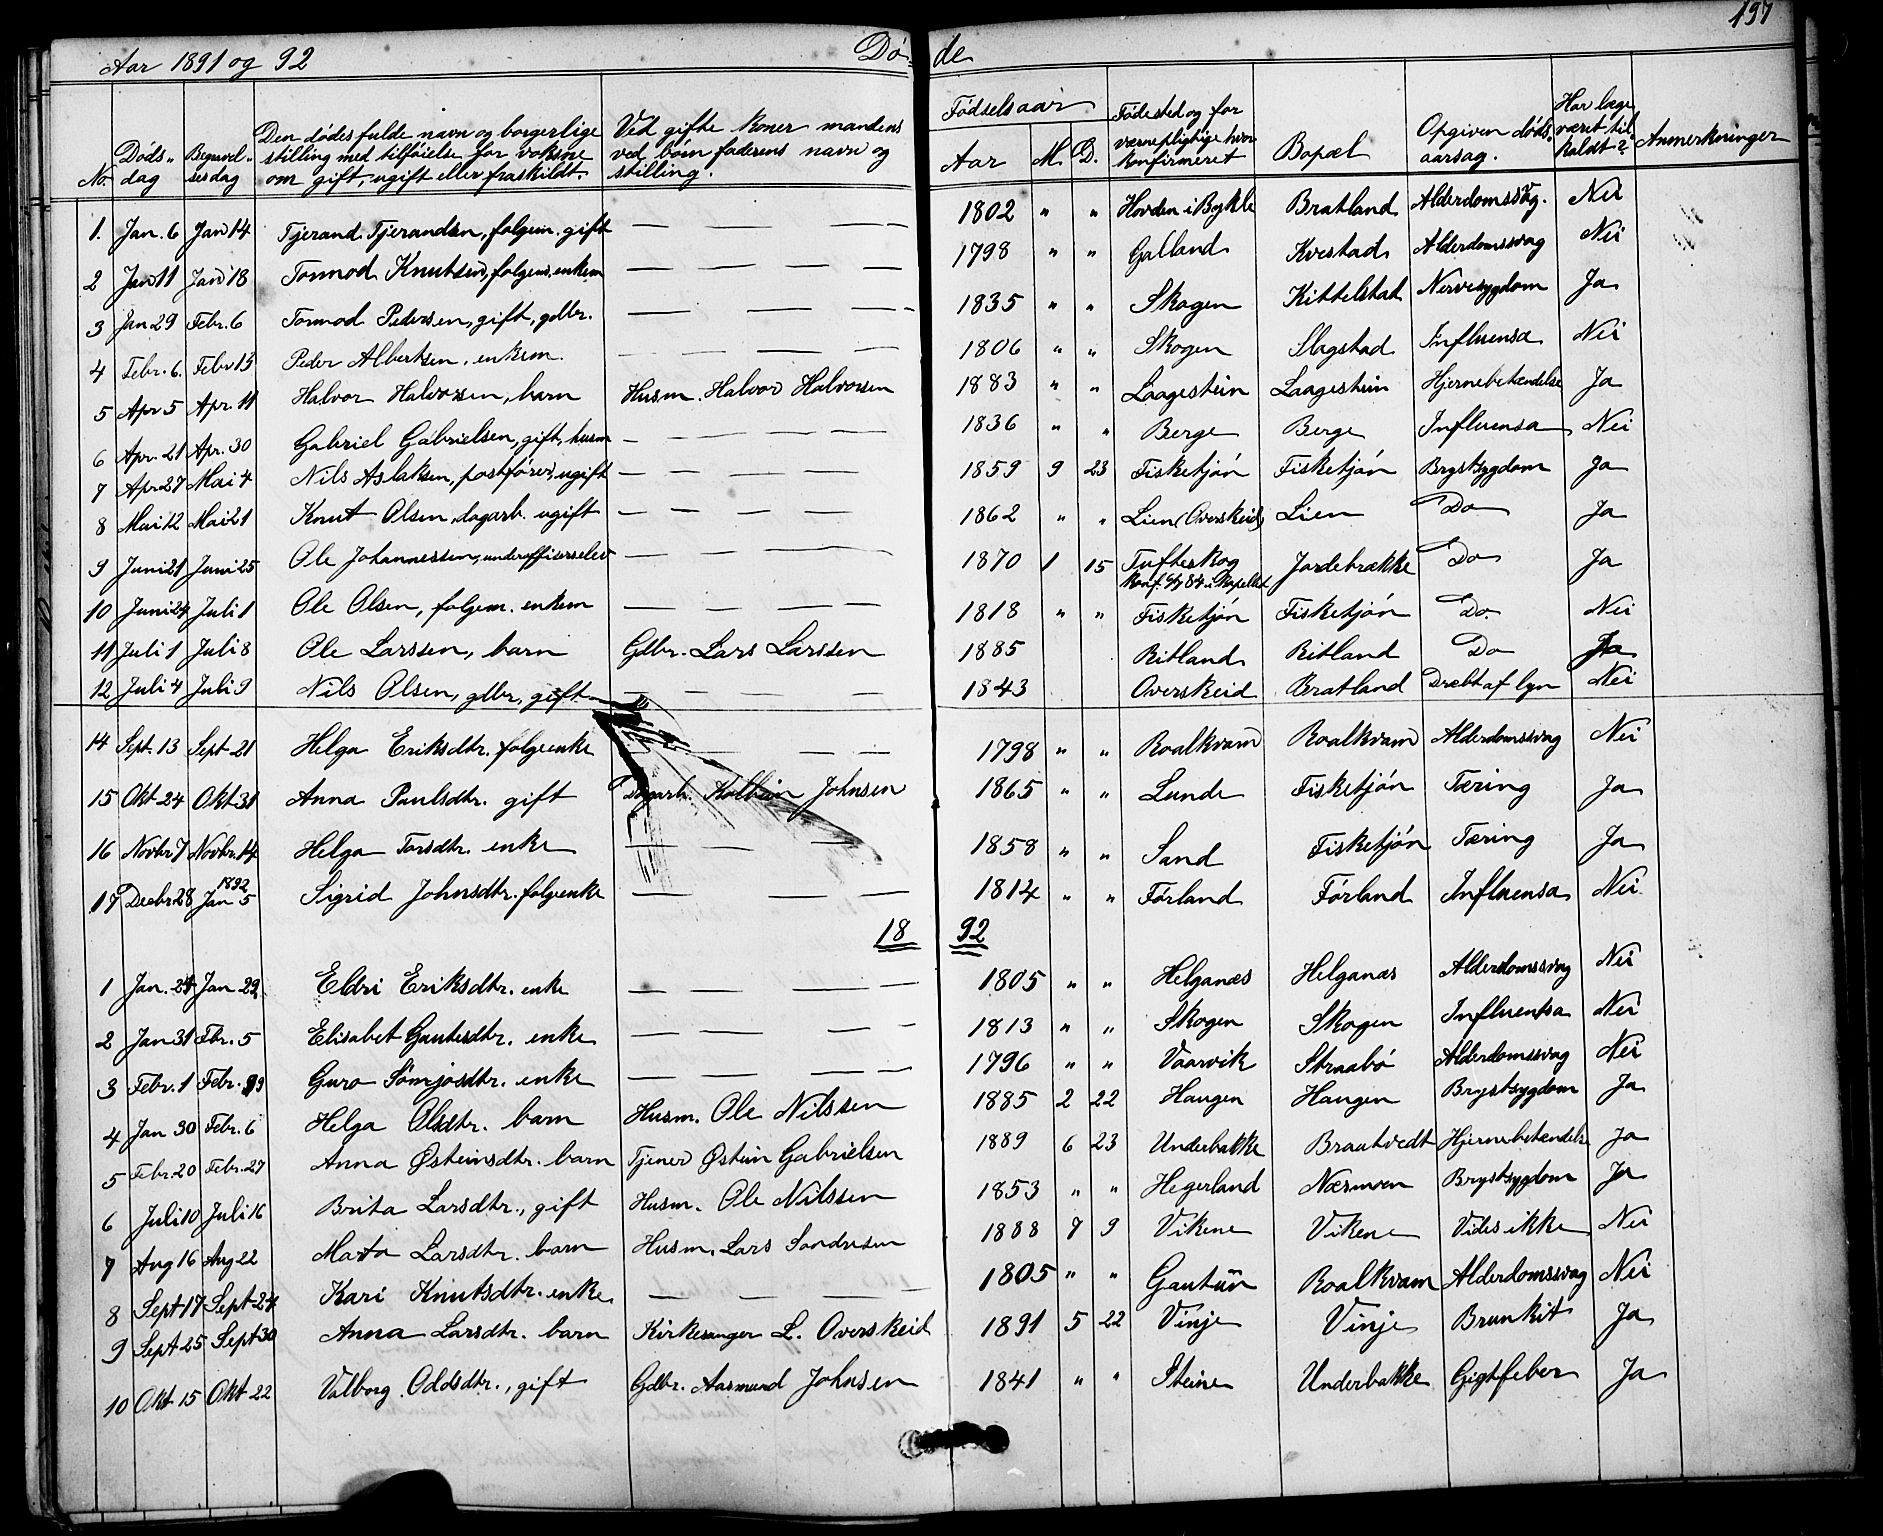 197
Aar 1891 og 92 Dö de
No. Döds- dag Begravel- sesdag Den dödes fulde navn og borgerlige stilling med tilföielse for voksne om gift, ugift eller fraskildt. Ved gifte koner mandens ved börn faderens navn og stilling. Födselsaar Aar M. D. Födested og for værnepligtige hvor konfirmeret Bopæl Opgiven döds- aarsag. Har læge været til- kaldt? Anmerkninger
1. Jan. 6 Jan 14 Tjerand Tjerandsen, folgem. gift — — — — 1802 " " Hovden i Bykle Bratland Alderdomssvag. Nei
2 Jan 11 Jan 18 Tormod Knutsen, folgem, enkem — — — — 1798 " " Galland Kvestad Alderdomssvag Nei
3 Jan 29 Febr. 6 Tormod Pedersen, gift, gdbr. — — — — 1835 " " Skogen Kittelstad Nervesygdom Ja
4 Febr. 6. Febr 13 Peder Albertsen, enkem. — — — — 1806 " " Skogen Slagstad Influensa Nei
5 Apr 5 Apr. 11 Halvor Halvorsen, barn Husm. Halvor Halvorsen 1883 " " Laagestein Laagestein Hjernebetændelse Ja
6 Apr. 21 Apr. 30 Gabriel Gabrielsen, gift, husm — — — — 1836 " " Berge Berge Influensa Nei
7 Apr 27 Mai 4 Nils Aslaksen, postförer, ugift — — — — 1859 9 23 Fisketjön Fisketjön Brystsygdom Ja
8 Mai 12 Mai 21 Knut Olsen, dagarb. ugift — — — — 1862 " " Lien (Overskeid) Lien Do Ja
9 Juni 21 Juni 25 Ole Johannessen, underofficerselev — — — — 1870 1 15 Tufteskog Jordebrække Do Ja
10 Juni 24 Juli 1 Ole Olsen, folgem. enkem — — — — 1818 " " Fisketjön Fisketjön Do. Nei
11 Juli 1 Juli 8 Ole Larssen, barn Gdbr. Lars Larssen 1885 Ritland Ritland Do Ja
12 Juli 4 Juli 9 Nils Olsen, gdbr, gift — — — — 1843 Overskeid Bratland Dræbt af lyn Nei
14 Sept. 13 Sept 21 Helga Eriksdtr. folgeenke — — — 1798 " " Roalkvam Roalkvam Alderdomssvag Nei
15 Okt 24 Okt 31 Anna Paulsdtr. gift Dagarb. Kolbein Johnsen 1865 " " Lunde Fisketjön Tæring Ja
16 Novbr 7 Novbr. 14 Helga Torsdtr. enke — — — — 1858 " " Sand Fisketjön Tæring Ja
17 Decbr 28 1892 Jan 5 Sigrid Johnsdtr. folgeenke — — — 1814 " " Förland Förland Influensa Nei
18 92
1 Jan. 24 Jan 29 Eldri Eriksdtr. enke — — — — 1805 " " Helganæs Helganæs Alderdomssvag Nei
2 Jan 31 Fbr. 5 Elisabet Gautesdtr. enke — — — — 1813 " " Skogen Skogen Influentsa Nei
3 Febr. 1 Febr. 9 Guro Sömjosdtr. enke — — — — 1796 " " Vaarvik Straabö Alderdomssvag Nei
4 Jan 30 Febr. 6 Helga Olsdtr. barn Husm. Ole Nilssen 1885 2 22 Haugen Haugen Brystsygdom Ja
5 Febr. 20 Febr. 27 Anna Østeinsdtr. barn Tjener Østein Gabrielsen 1889 6 23 Underbakke Brautvedt Hjernebetændelse Ja
6 Juli 10 Juli 16 Brita Larsdtr., gift Husm. Ole Nilssen 1853 " " Hegerland Næsmoen Brystsygdom Ja
7 Aug 16 Aug 22 Marta Larsdtr. barn Husm. Lars Sondresen 1888 7 9 Vikene Vikene Vides ikke Nei
8 Sept 17 Sept 24 Kari Knutsdtr. enke — — — — 1805 " " Gautun Roalkvam Alderdomssvag Nei
9 Sept 25 Sept 30 Anna Larsdtr. barn Kirkesanger L. Overskeid 1891 5 22 Vinje Vinje Brunkit Ja
10 Okt 15 Okt 22 Valborg Oddsdtr., gift Gdbr. Aasmund Johnsen 1841 " " Steine Underbakke Gigtfeber Ja